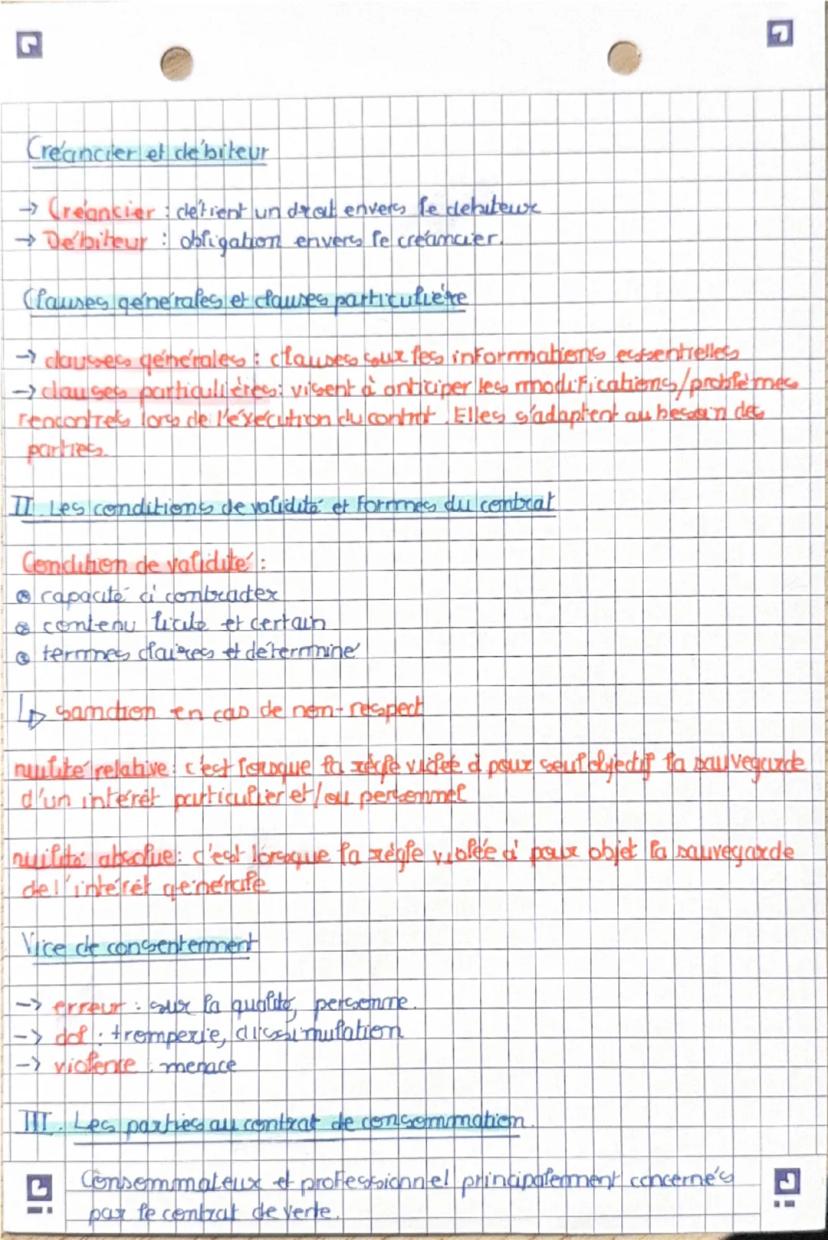 Créancier et débiteur
→ Créancier : détient un droit envers le débiteur
→ Débiteur : obligation envers le créancier.
Clauses générales et clauses particulière
→ clauses générales : clauses sur les informations essentielles
→ clauses particulières : visent à anticiper les modifications/problèmes
rencontrés lors de l'exécution du contrat. Elles s'adaptent au besoin des
parties.
II. Les conditions de validité et formes du contrat
Condition de validité :
capacité à contracter
contenu licite et certain
termes claires et déterminé
↳ sanction en cas de non-respect
nullité relative : c'est lorsque la règle violée à pour seul objectif la sauvegarde
d'un intérêt particulier et/ou personnel
nullité absolue : c'est lorsque la règle violée à pour objet la sauvegarde
de l'intérêt générale
Vice de consentement
→ erreur : sur la qualité, personne.
→ dol : tromperie, dissimulation
→ violence : menace
III. Les parties au contrat de consommation.
Consommateur et professionnel principalement concernés
par le contrat de vente.